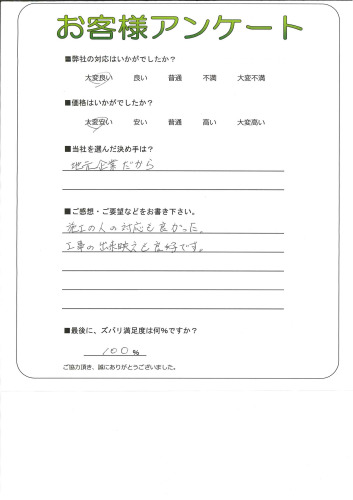 お客様アンケート
■弊社の対応はいかがでしたか?
大変良い 良い 普通 不満 大変不満
■価格はいかがでしたか?
大変安い 安い 普通 高い 大変高い
■当社を選んだ決め手は?
地元企業だから
■ご感想・ご要望などをお書き下さい。
施工の人の対応も良かった。
工事の出来映えも良好です。
■最後に、ズバリ満足度は何%ですか?
100%
ご協力頂き、誠にありがとうございました。